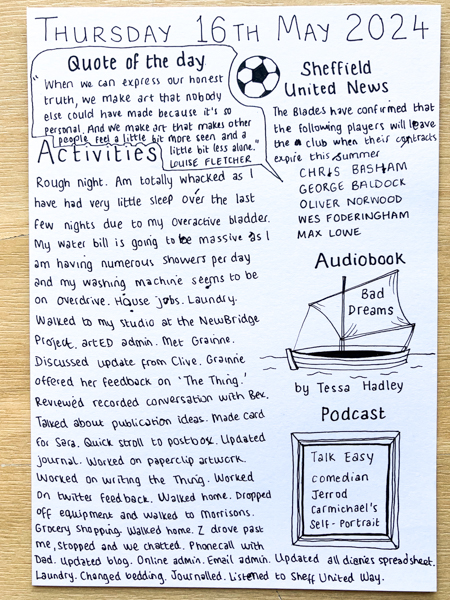 THURSDAY 16TH MAY 2024
Quote of the day
"When we can express our honest
truth, we make art that nobody
else could have made because it's so
personal. And we make art that makes other
people feel a little bit more seen and a
little bit less alone."
LOUISE FLETCHER
Sheffield
United News
The Blades have confirmed that
the following players will leave
the club when their contracts
expire this summer
CHRIS BASHAM
GEORGE BALDOCK
OLIVER NORWOOD
WES FODERINGHAM
MAX LOWE
Activities
Rough night. Am totally whacked as I
have had very little sleep over the last
few nights due to my overactive bladder.
My water bill is going to be massive as I
am having numerous showers per day
and my washing machine seems to be
on overdrive. House jobs. Laundry.
Walked to my studio at the NewBridge
Project. artED admin. Met Grainne.
Discussed update from Clive. Grainne
offered her feedback on 'The Thing.'
Reviewed recorded conversation with Bex.
Talked about publication ideas. Made card
for Sara. Quick stroll to postbox. Updated
journal. Worked on paperclip artwork.
Worked on writing the Thing. Worked
on twitter feedback. Walked home. Dropped
off equipment and walked to Morrisons.
Grocery shopping. Walked home. Z drove past
me, stopped and we chatted. Phonecall with
Dad. Updated blog. Online admin. Email admin. Updated all diaries spreadsheet.
Laundry. Changed bedding. Journalled. Listened to Sheff United Way.
Audiobook
Bad
Dreams
by Tessa Hadley
Podcast
Talk Easy
comedian
Jerrod
Carmichael's
Self-Portrait